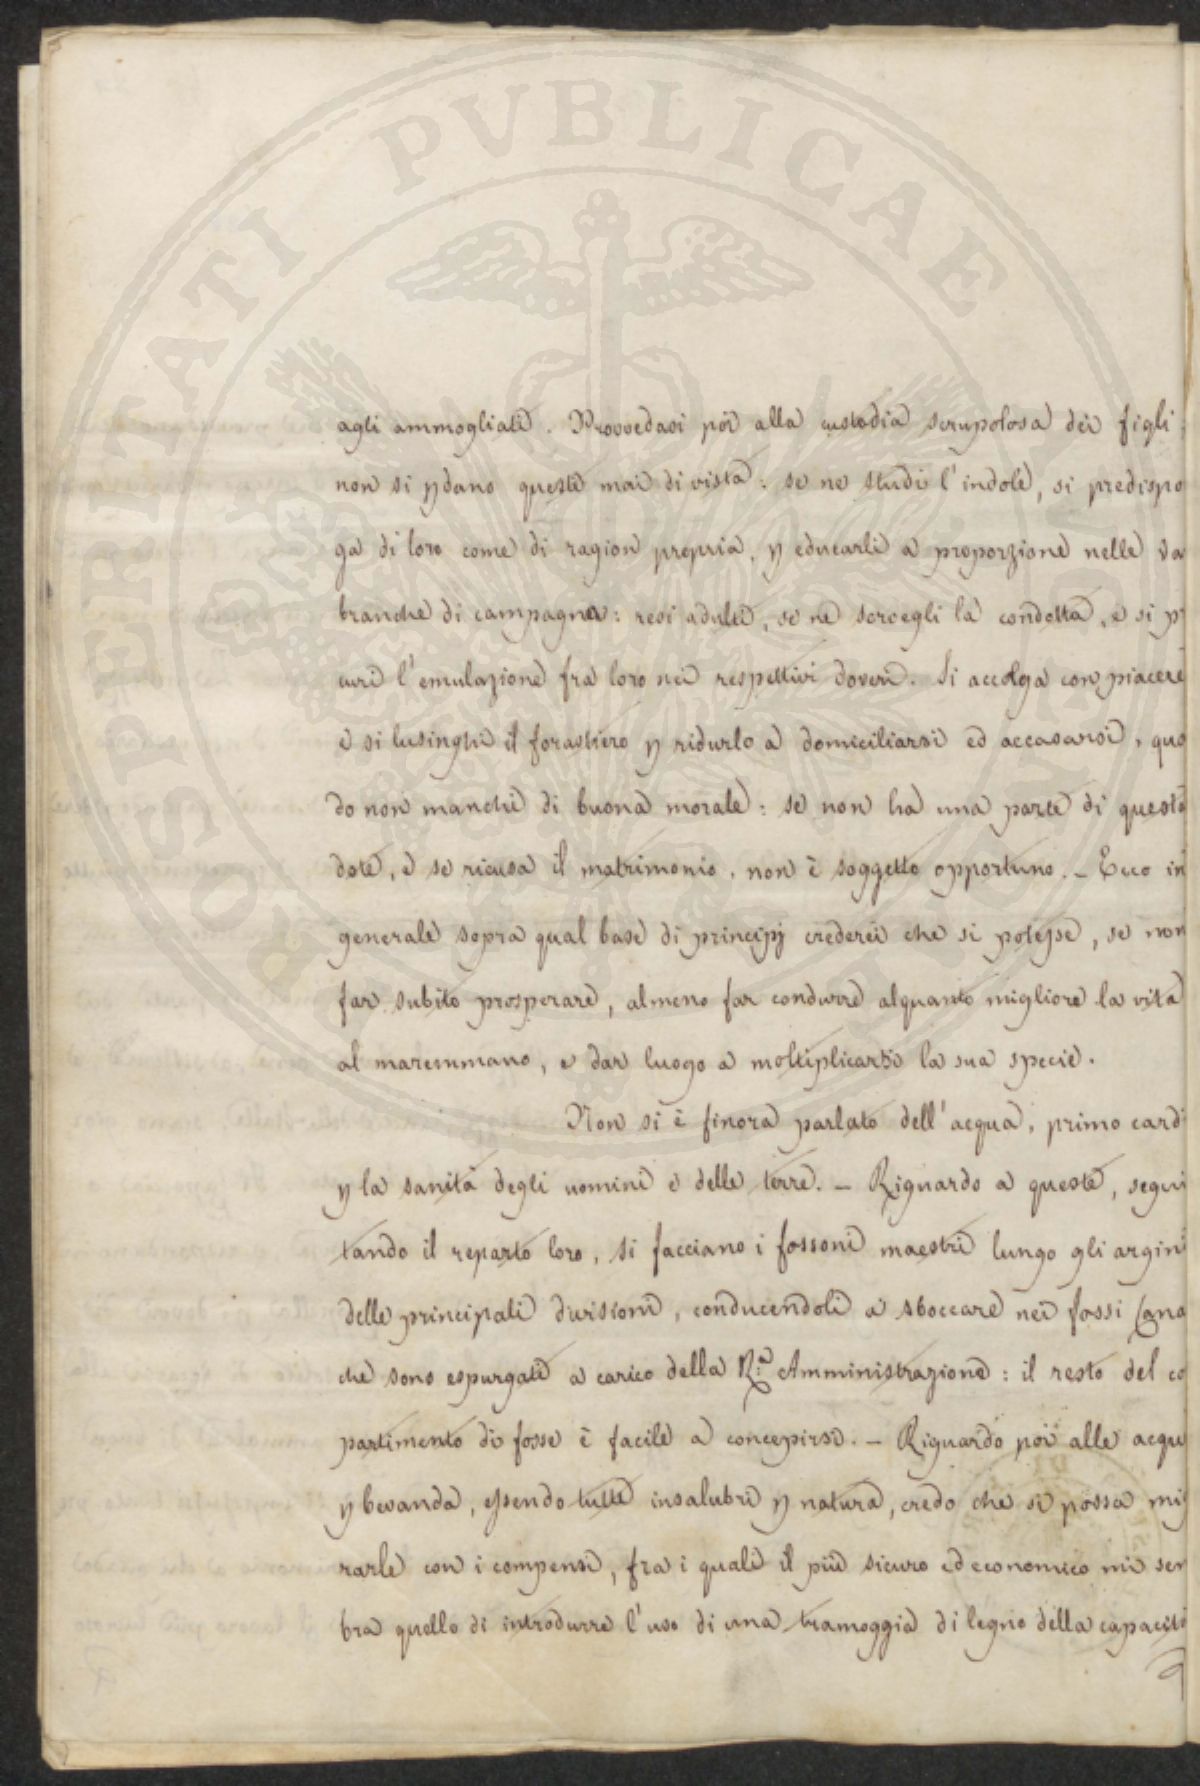 PROSPERITATI PVBLICAE
agli ammogliati. Provvedasi poi alla custodia scrupolosa dei figli:
non si p̱dano queste mai di vista: se ne studi l'indole, si predispo
ga di loro come di ragion propria, p̱ educarli a proporzione nelle va
branche di campagna: resi adulti, se ne sorvegli la condotta, e si p
curi l'emulazione fra loro nei respettivi doveri. Si accolga con piacere
e si lusinghi il forastiero p̱ ridurlo a domiciliarsi ed accasarsi, qua
do non manchi di buona morale: se non ha una parte di questa
dote, e se ricusa il matrimonio, non è soggetto opportuno. _ Ecco in
generale sopra qual base di principj crederei che si potesse, se non
far subito prosperare, almeno far condurre alquanto migliore la vita
al maremmano, e dar luogo a moltiplicarsi la sua specie.
Non si è finora parlato dell'acqua, primo cardi
p̱ la sanità degli uomini e delle terre. _ Riguardo a queste, segui
tando il reparto loro, si facciano i fossoni maestri lungo gli argini
delle principali divisioni, conducendoli a sboccare nei fossi Cana
che sono espurgati a carico della R.ᵃ Amministrazione: il resto del co
partimento di fosse è facile a concepirsi. _ Riguardo poi alle acque
p̱ bevanda, essendo tutte insalubri p̱ natura, credo che si possa mi
rarle con i compensi, fra i quali il più sicuro ed economico mi sem
bra quello di introdurre l'uso di una tramoggia di legno della capacità